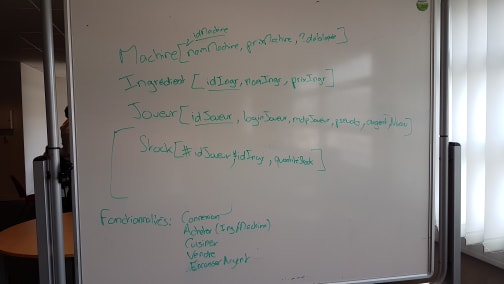 idMachine
Machine [nomMachine, prixMachine, ?
Ingrédient [idIngr, nomIngr, prixIngr]
Joueur [idJoueur, loginJoueur, mdpJoueur, pseudo, argent,
Stock [#idJoueur, #idIngr, quantiteStock]
Fonctionnalités: Connexion
Acheter (Ing/Machine)
Cuisiner
Vendre
Emprunter Argent